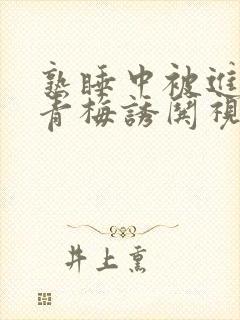 熟睡中被進
青梅誘関視
井上熏